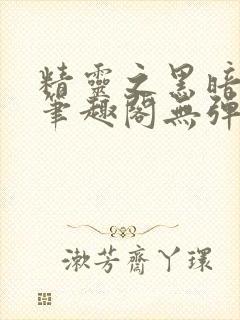 精靈之黑暗
筆趣閣無彈
漱芳齋丫環